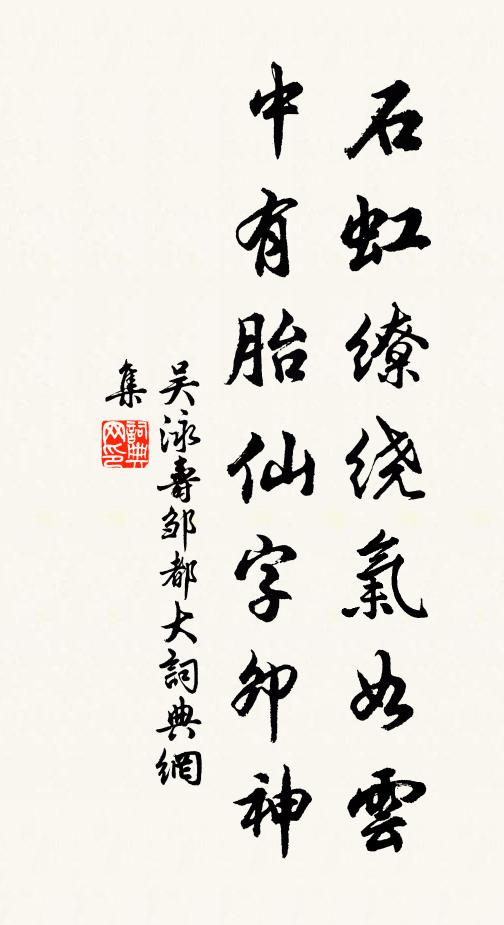 石虹缭绕氣如雲
中有胎仙字卯神
吴泳壽邹都大詞典網
集
詞典网印